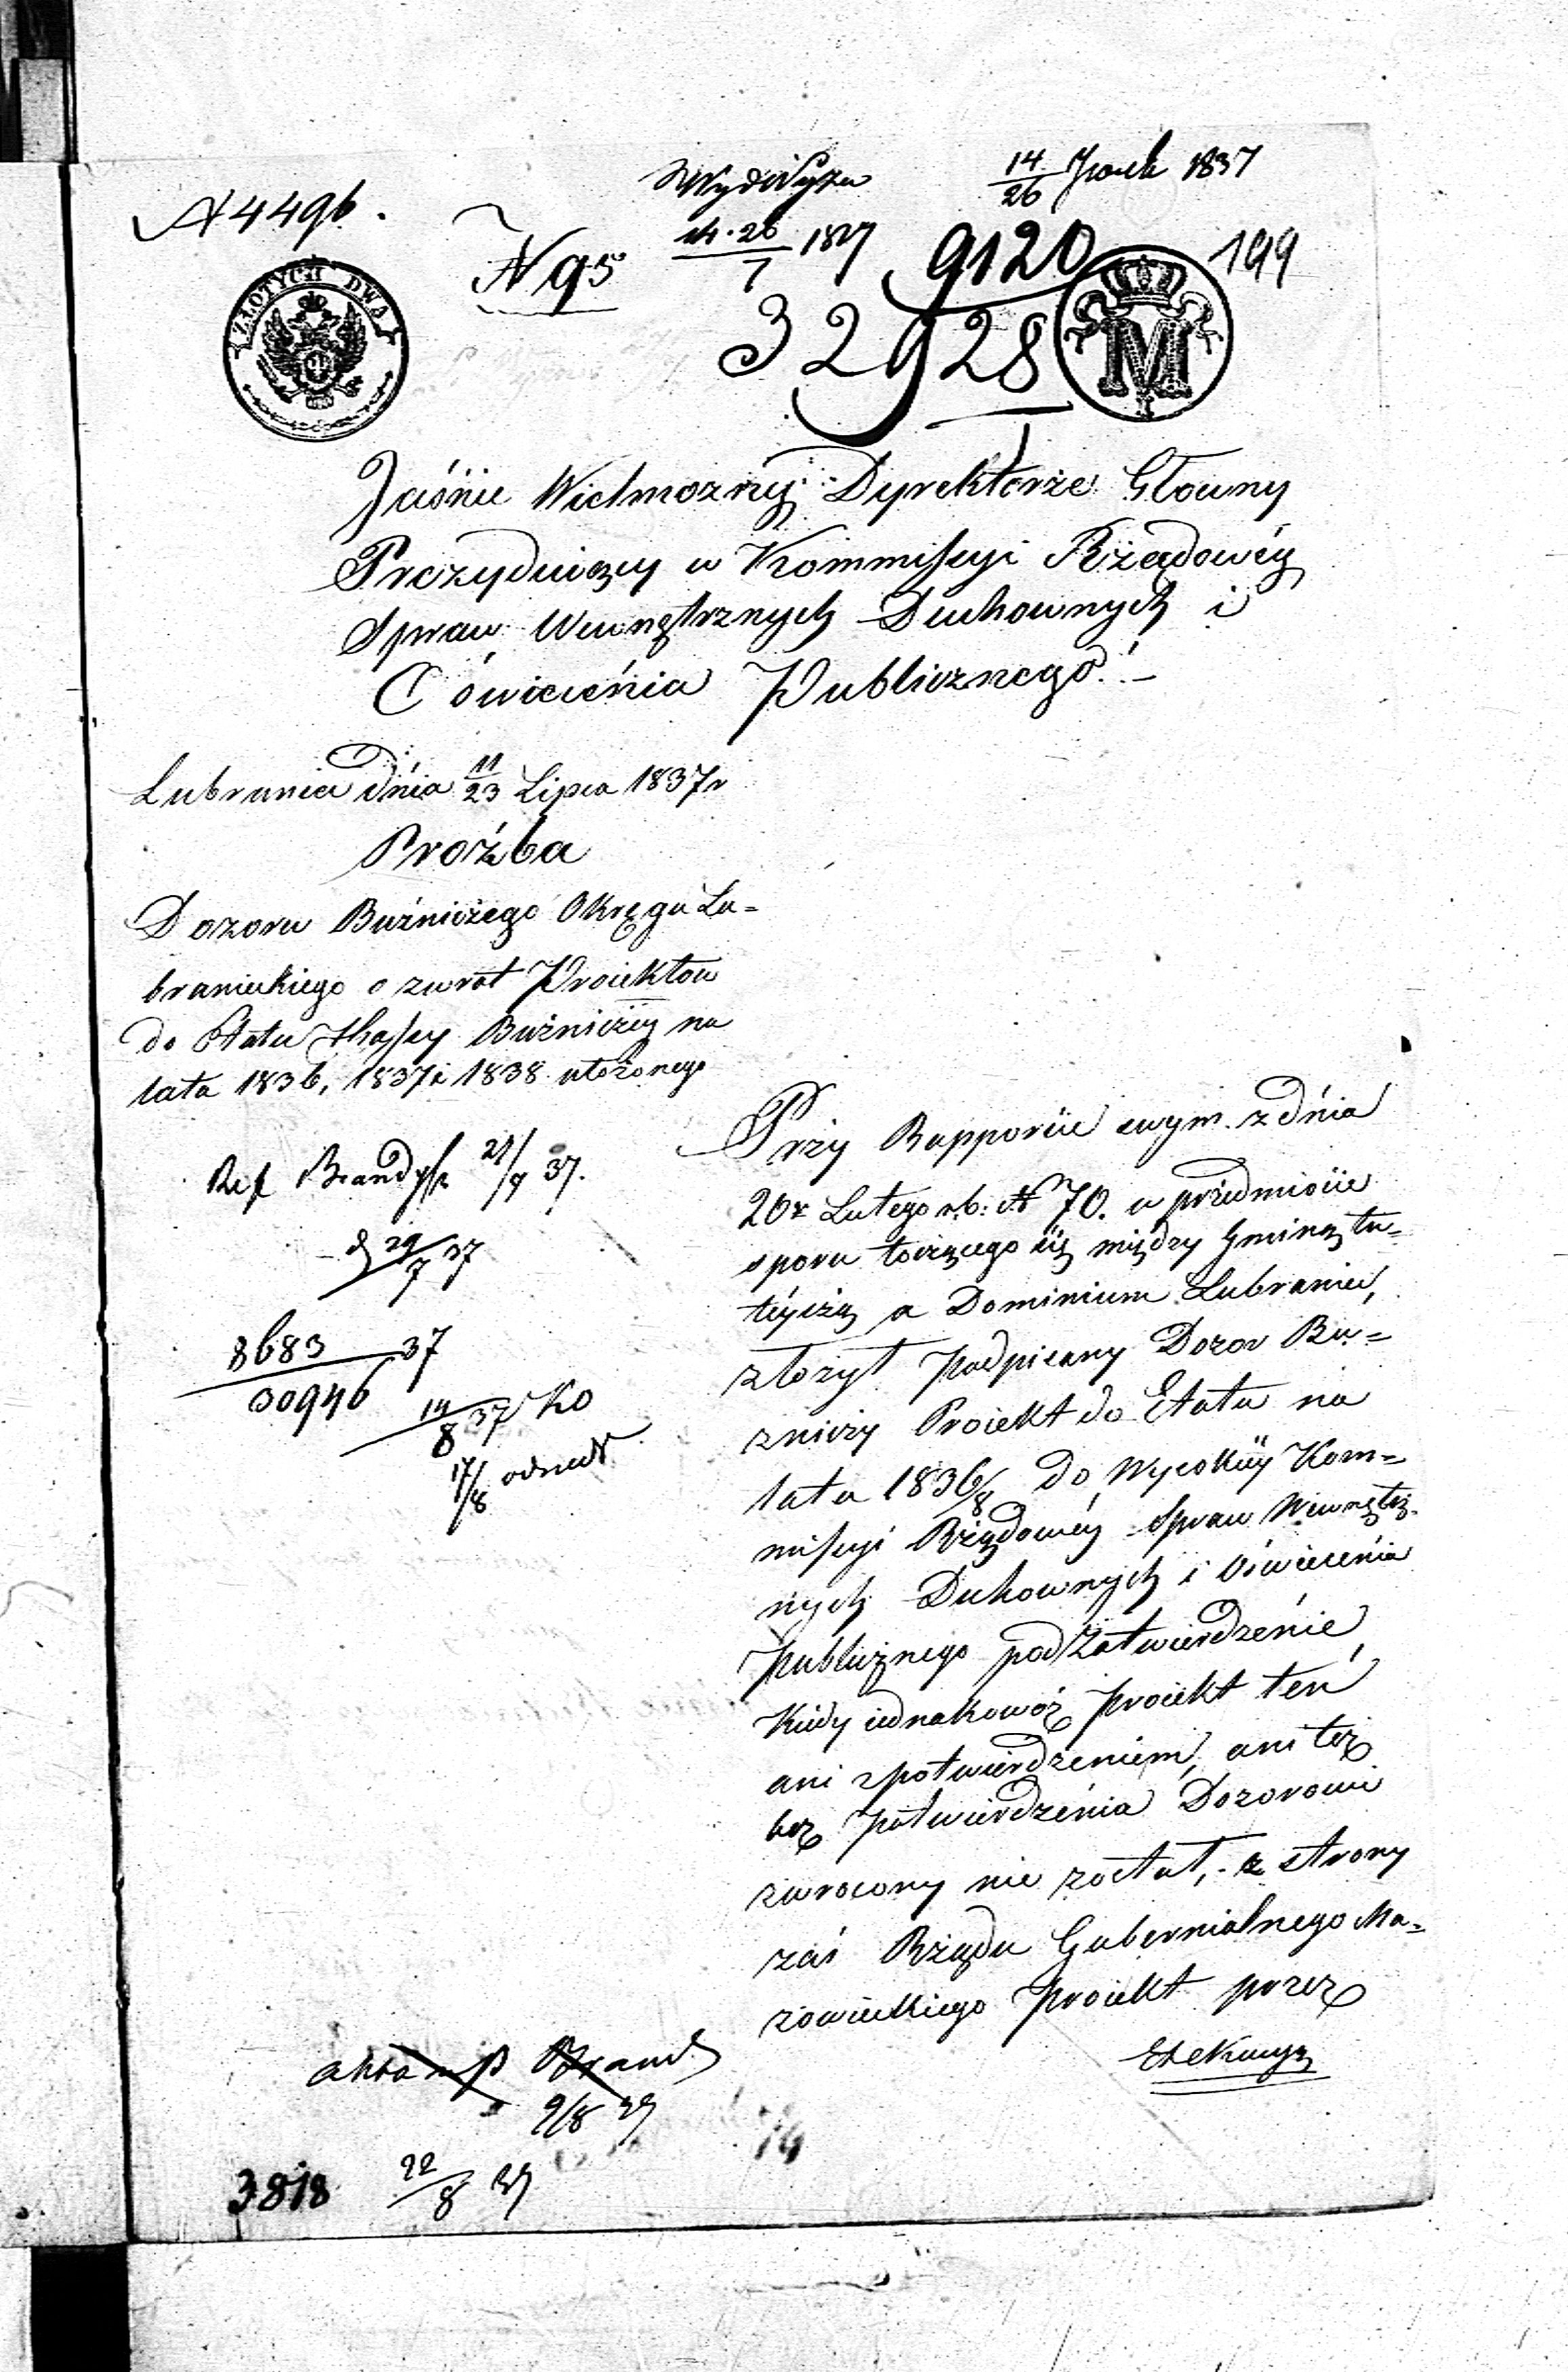 N 4496.
N 95
14/26 1837
9120
199
32928
ZŁOTYCH DWA
M
Jaśnie Wielmożny Dyrektorze Głowny
Prezyduiący w Kommissyi Rządowéy
Spraw Wewnętrznych Duchownych i
Oświecénia Publicznego!
Lubraniec dnia 11/23 Lipca 1837r
Proźba
Dozoru Bużniczego Okręgu Lu=
branieckiego o zwrot Proiektow
do Etatu Kassy Bużniczey na
lata 1836, 1837 i 1838 ułożonego
Ref Brandys 37.
29/7 37
8683 37
30946
14/8 37 Ko
17/8
Przy Rapporcie swym z dnia
20r Lutego r.b. N 70. w przedmiocie
sporu toczącego się między Gminą tu=
téyszą a Dominium Lubraniec,
złożył Podpisany Dozor Bu=
zniczy Proiekt do Etatu na
lata 1836/8 do Wysokiey Kom=
missyi Rządowéy Spraw Wewnętrz=
nych Duchownych i Oświecénia
Publicznego pod Zatwierdzénie
Kiedy iednakowoż Proiekt ten
ani z potwierdzeniem, ani też
bez potwierdzénia Dozorowi
zwrocony nie został, z strony
zaś Rządu Gubernialnego Ma=
zowieckiego Proiekt przez
Exekucyą
Brand
9/8 37
3818 22/8 37